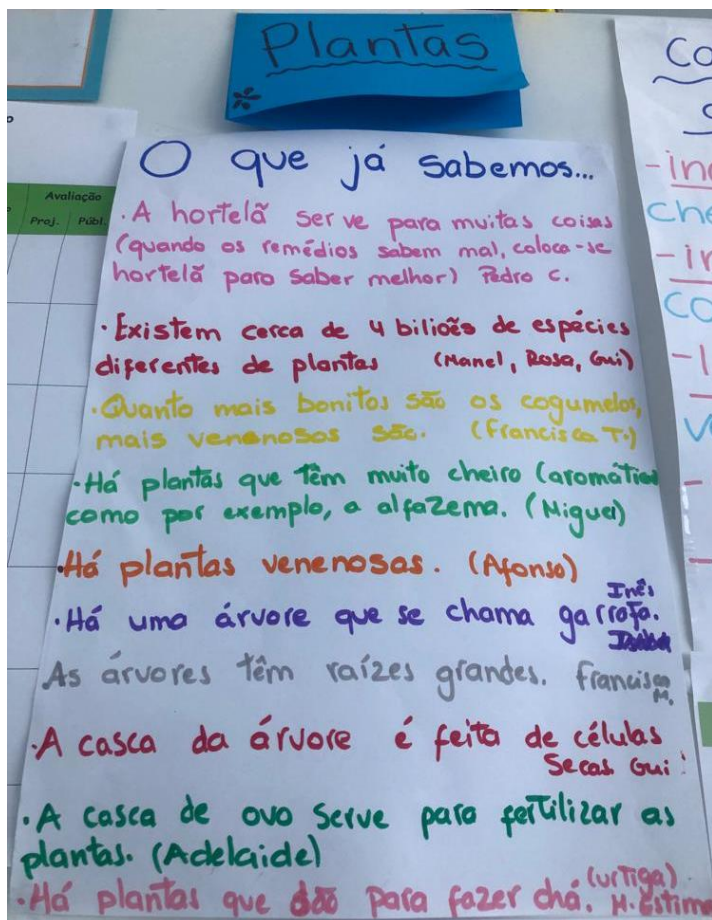 Plantas
Avaliação
Proj. Públ.
O que já sabemos...
· A hortelã serve para muitas coisas
(quando os remédios sabem mal, coloca-se
hortelã para saber melhor) Pedro C.
· Existem cerca de 4 biliões de espécies
diferentes de plantas (Manel, Rosa, Gui)
· Quanto mais bonitos são os cogumelos,
mais venenosos são. (Francisca T.)
· Há plantas que têm muito cheiro (aromáticas
como por exemplo, a alfazema. (Miguel)
· Há plantas venenosas. (Afonso)
· Há uma árvore que se chama garrafa. Inês
As árvores têm raízes grandes. Francisco
M.
· A casca da árvore é feita de células
secas Gui
· A casca de ovo serve para fertilizar as
plantas. (Adelaide)
· Há plantas que dão para fazer chá. (urtiga)
Co
-in
che
-ir
co